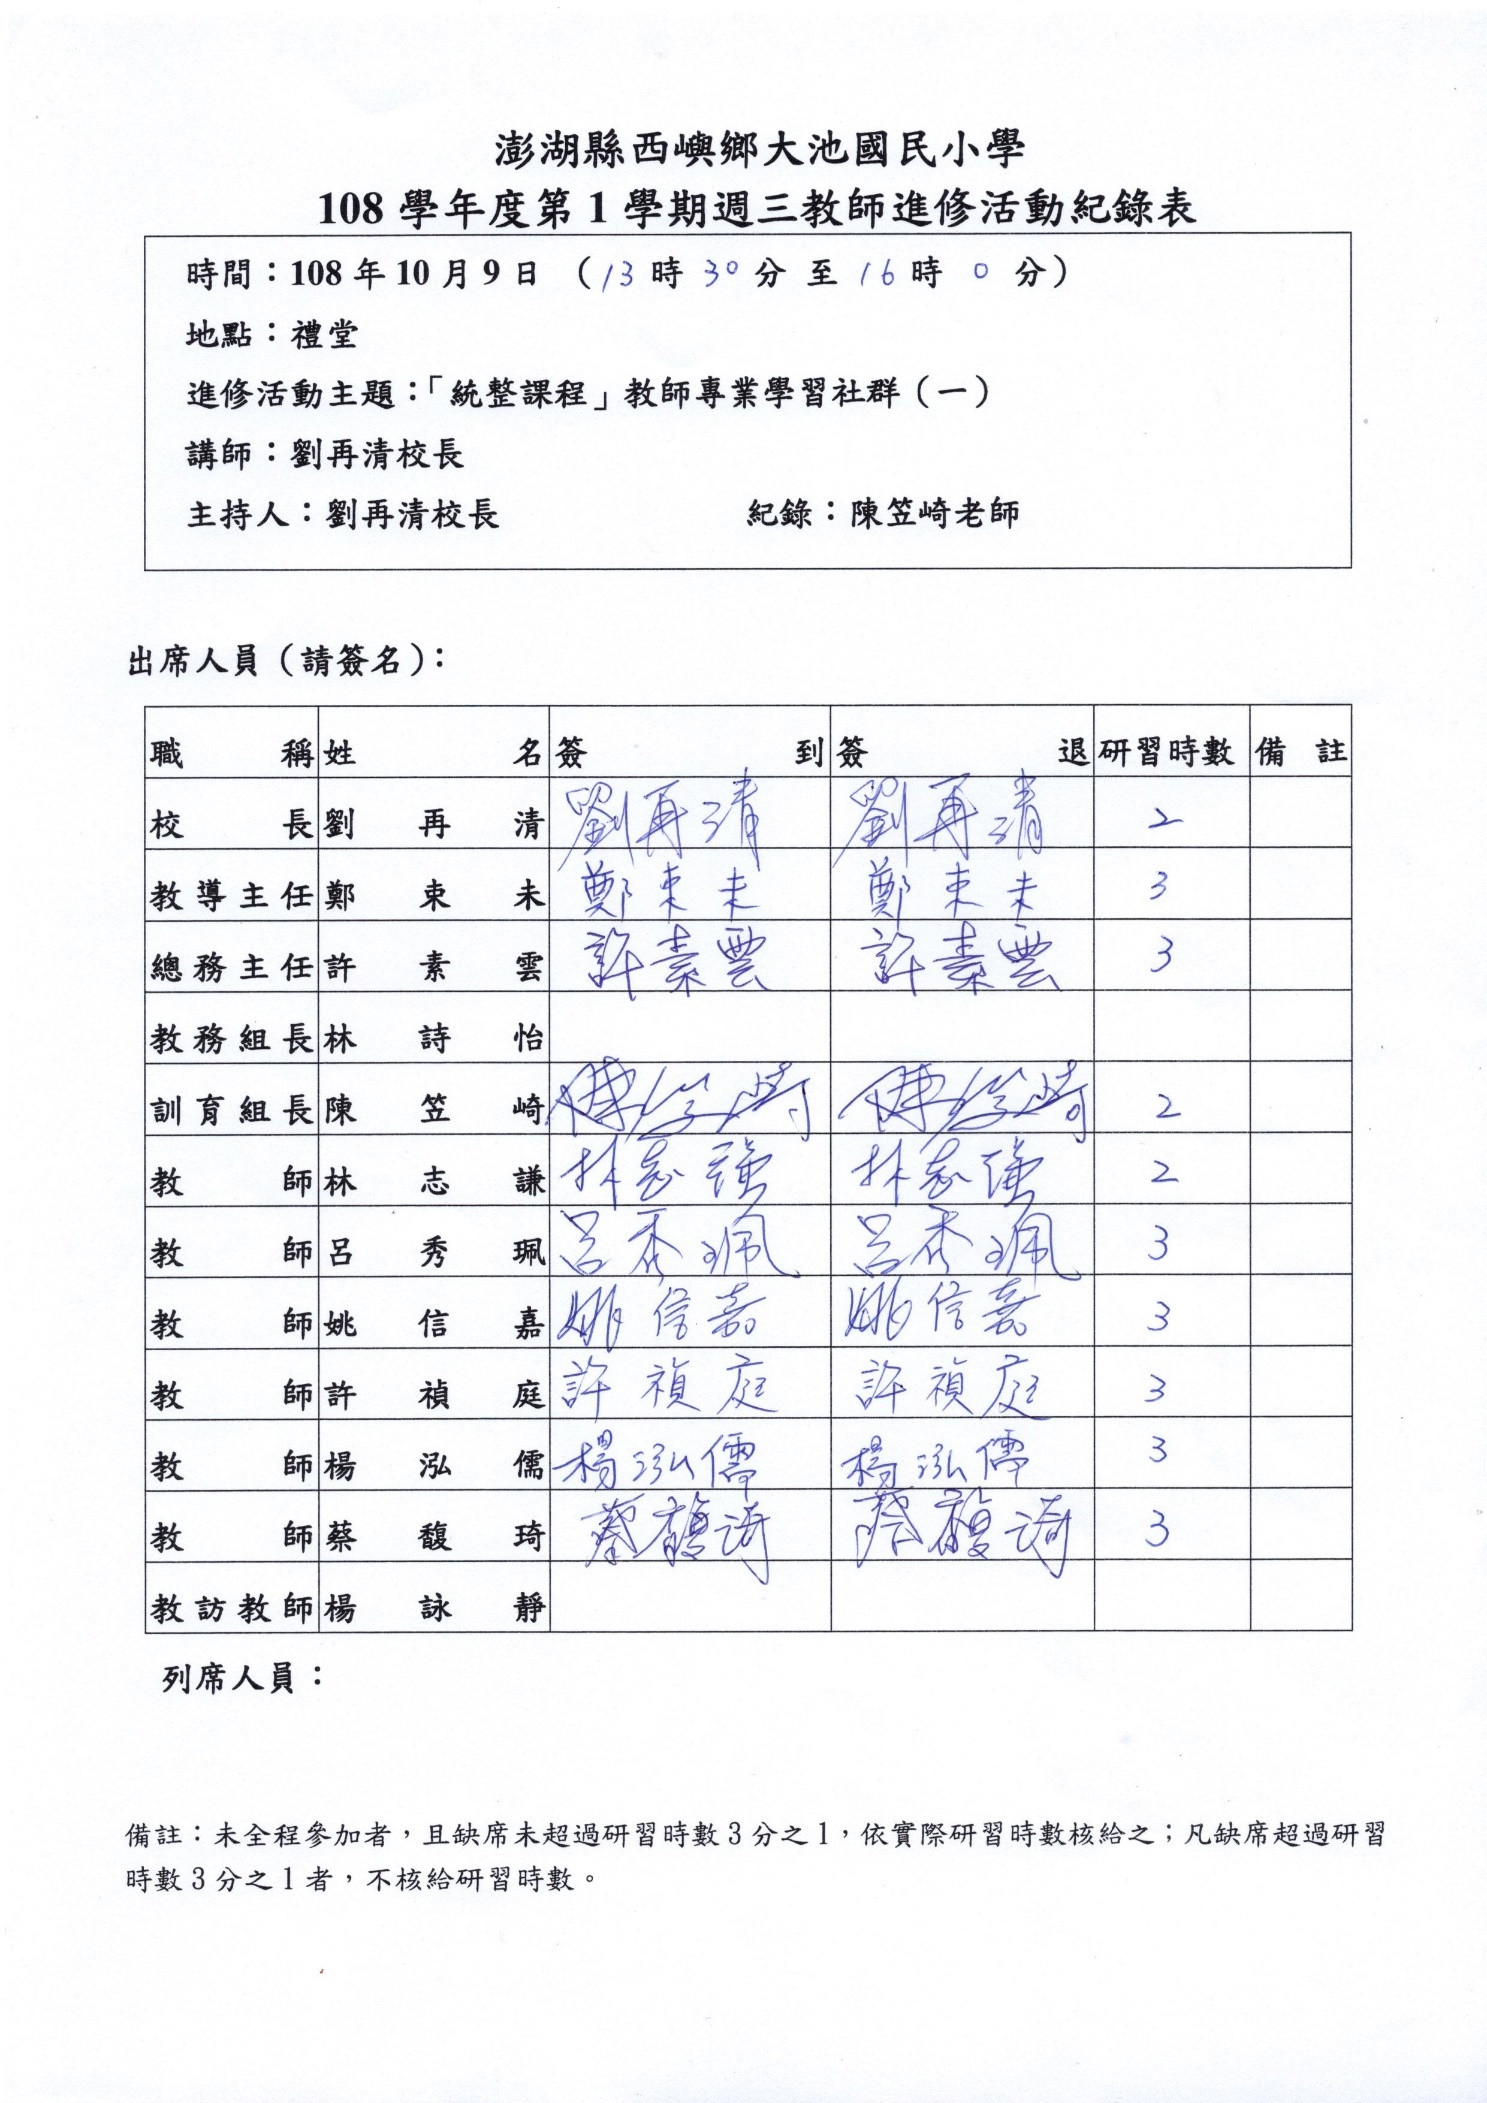 澎湖縣西嶼鄉大池國民小學
108 學年度第 1 學期週三教師進修活動紀錄表
時間：108 年 10 月 9 日 （13 時 30 分 至 16 時 0 分）
地點：禮堂
進修活動主題：「統整課程」教師專業學習社群（一）
講師：劉再清校長
主持人：劉再清校長 紀錄：陳笠崎老師
出席人員（請簽名）：
職稱 姓名 簽到 簽退 研習時數 備註
校長 劉再清 劉再清 劉再清 2
教導主任 鄭束未 鄭束未 鄭束未 3
總務主任 許素雲 許素雲 許素雲 3
教務組長 林詩怡
訓育組長 陳笠崎 陳笠崎 陳笠崎 2
教師 林志謙 林志謙 林志謙 2
教師 呂秀珮 呂秀珮 呂秀珮 3
教師 姚信嘉 姚信嘉 姚信嘉 3
教師 許禎庭 許禎庭 許禎庭 3
教師 楊泓儒 楊泓儒 楊泓儒 3
教師 蔡馥琦 蔡馥琦 蔡馥琦 3
教訪教師 楊詠靜
列席人員：
備註：未全程參加者，且缺席未超過研習時數 3 分之 1，依實際研習時數核給之；凡缺席超過研習
時數 3 分之 1 者，不核給研習時數。